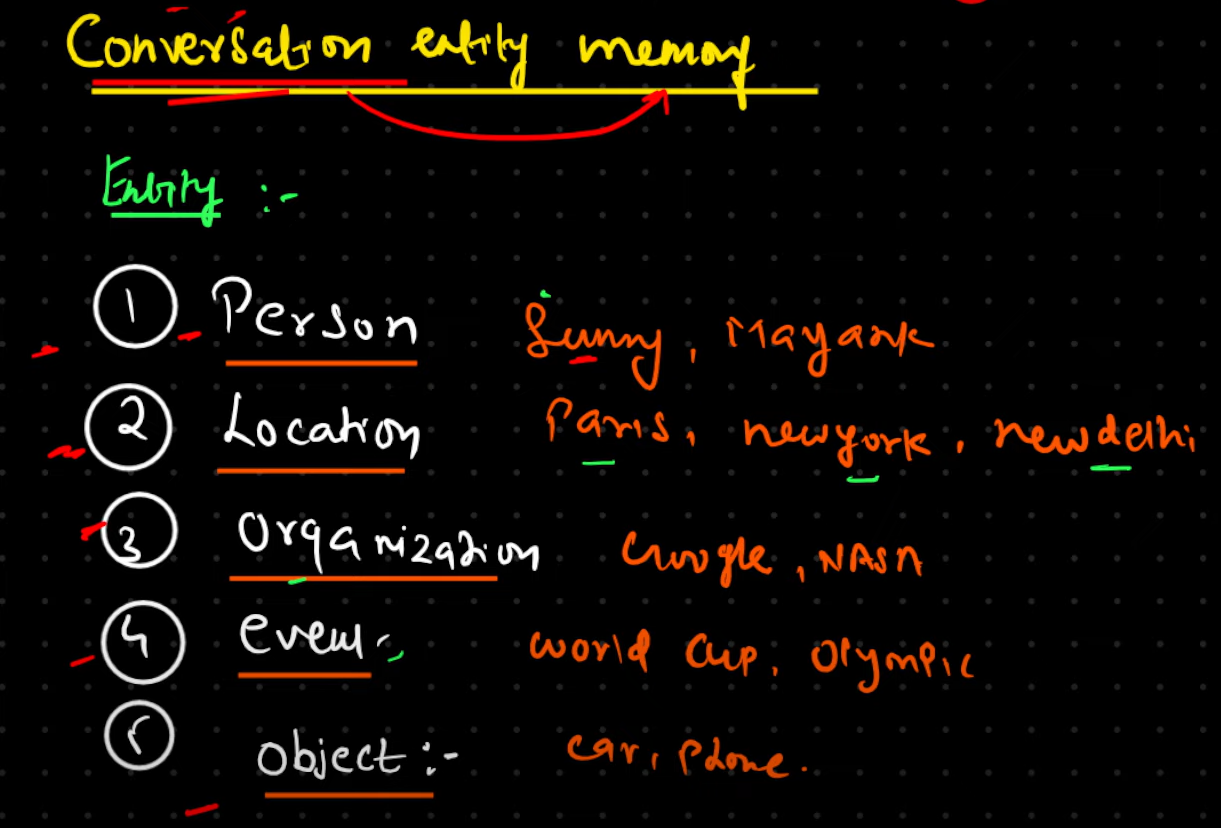 Conversation entity memory
Entity :-
1 Person Sunny, Mayank
2 Location Paris, newyork, newdelhi
3 Organization Google, NASA
4 event:- world Cup, Olympic
5 object:- car, phone.